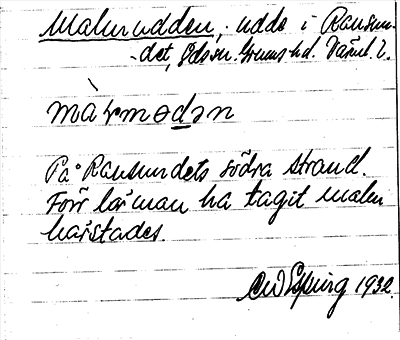 Malmudden, udde i Ransun-
det, Eds sn. Grums hd. Värml. l.
màrmødən
På Ransundets södra strand.
Förr lär man ha tagit malm
härstades.
1932.